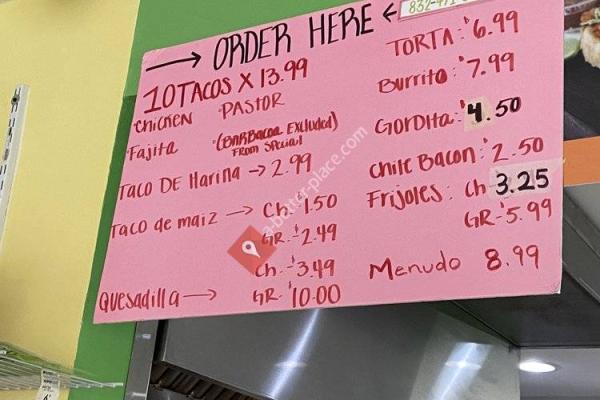 832-471-
→ ORDER HERE ←
10 TACOS X 13.99
CHICKEN PASTOR
Fajita (BARBACOA EXCLUDED)
FROM SPECIAL
TACO DE Harina → 2.99
TACO de maiz → Ch. 1.50
GR. $2.49
Quesadilla → Ch. $3.49
GR. $10.00
TORTA: $6.99
Burrito: $7.99
GORDITA: $4.50
Chile Bacon: $2.50
Frijoles: Ch $3.25
GR-$5.99
Menudo 8.99
a-better-place.com